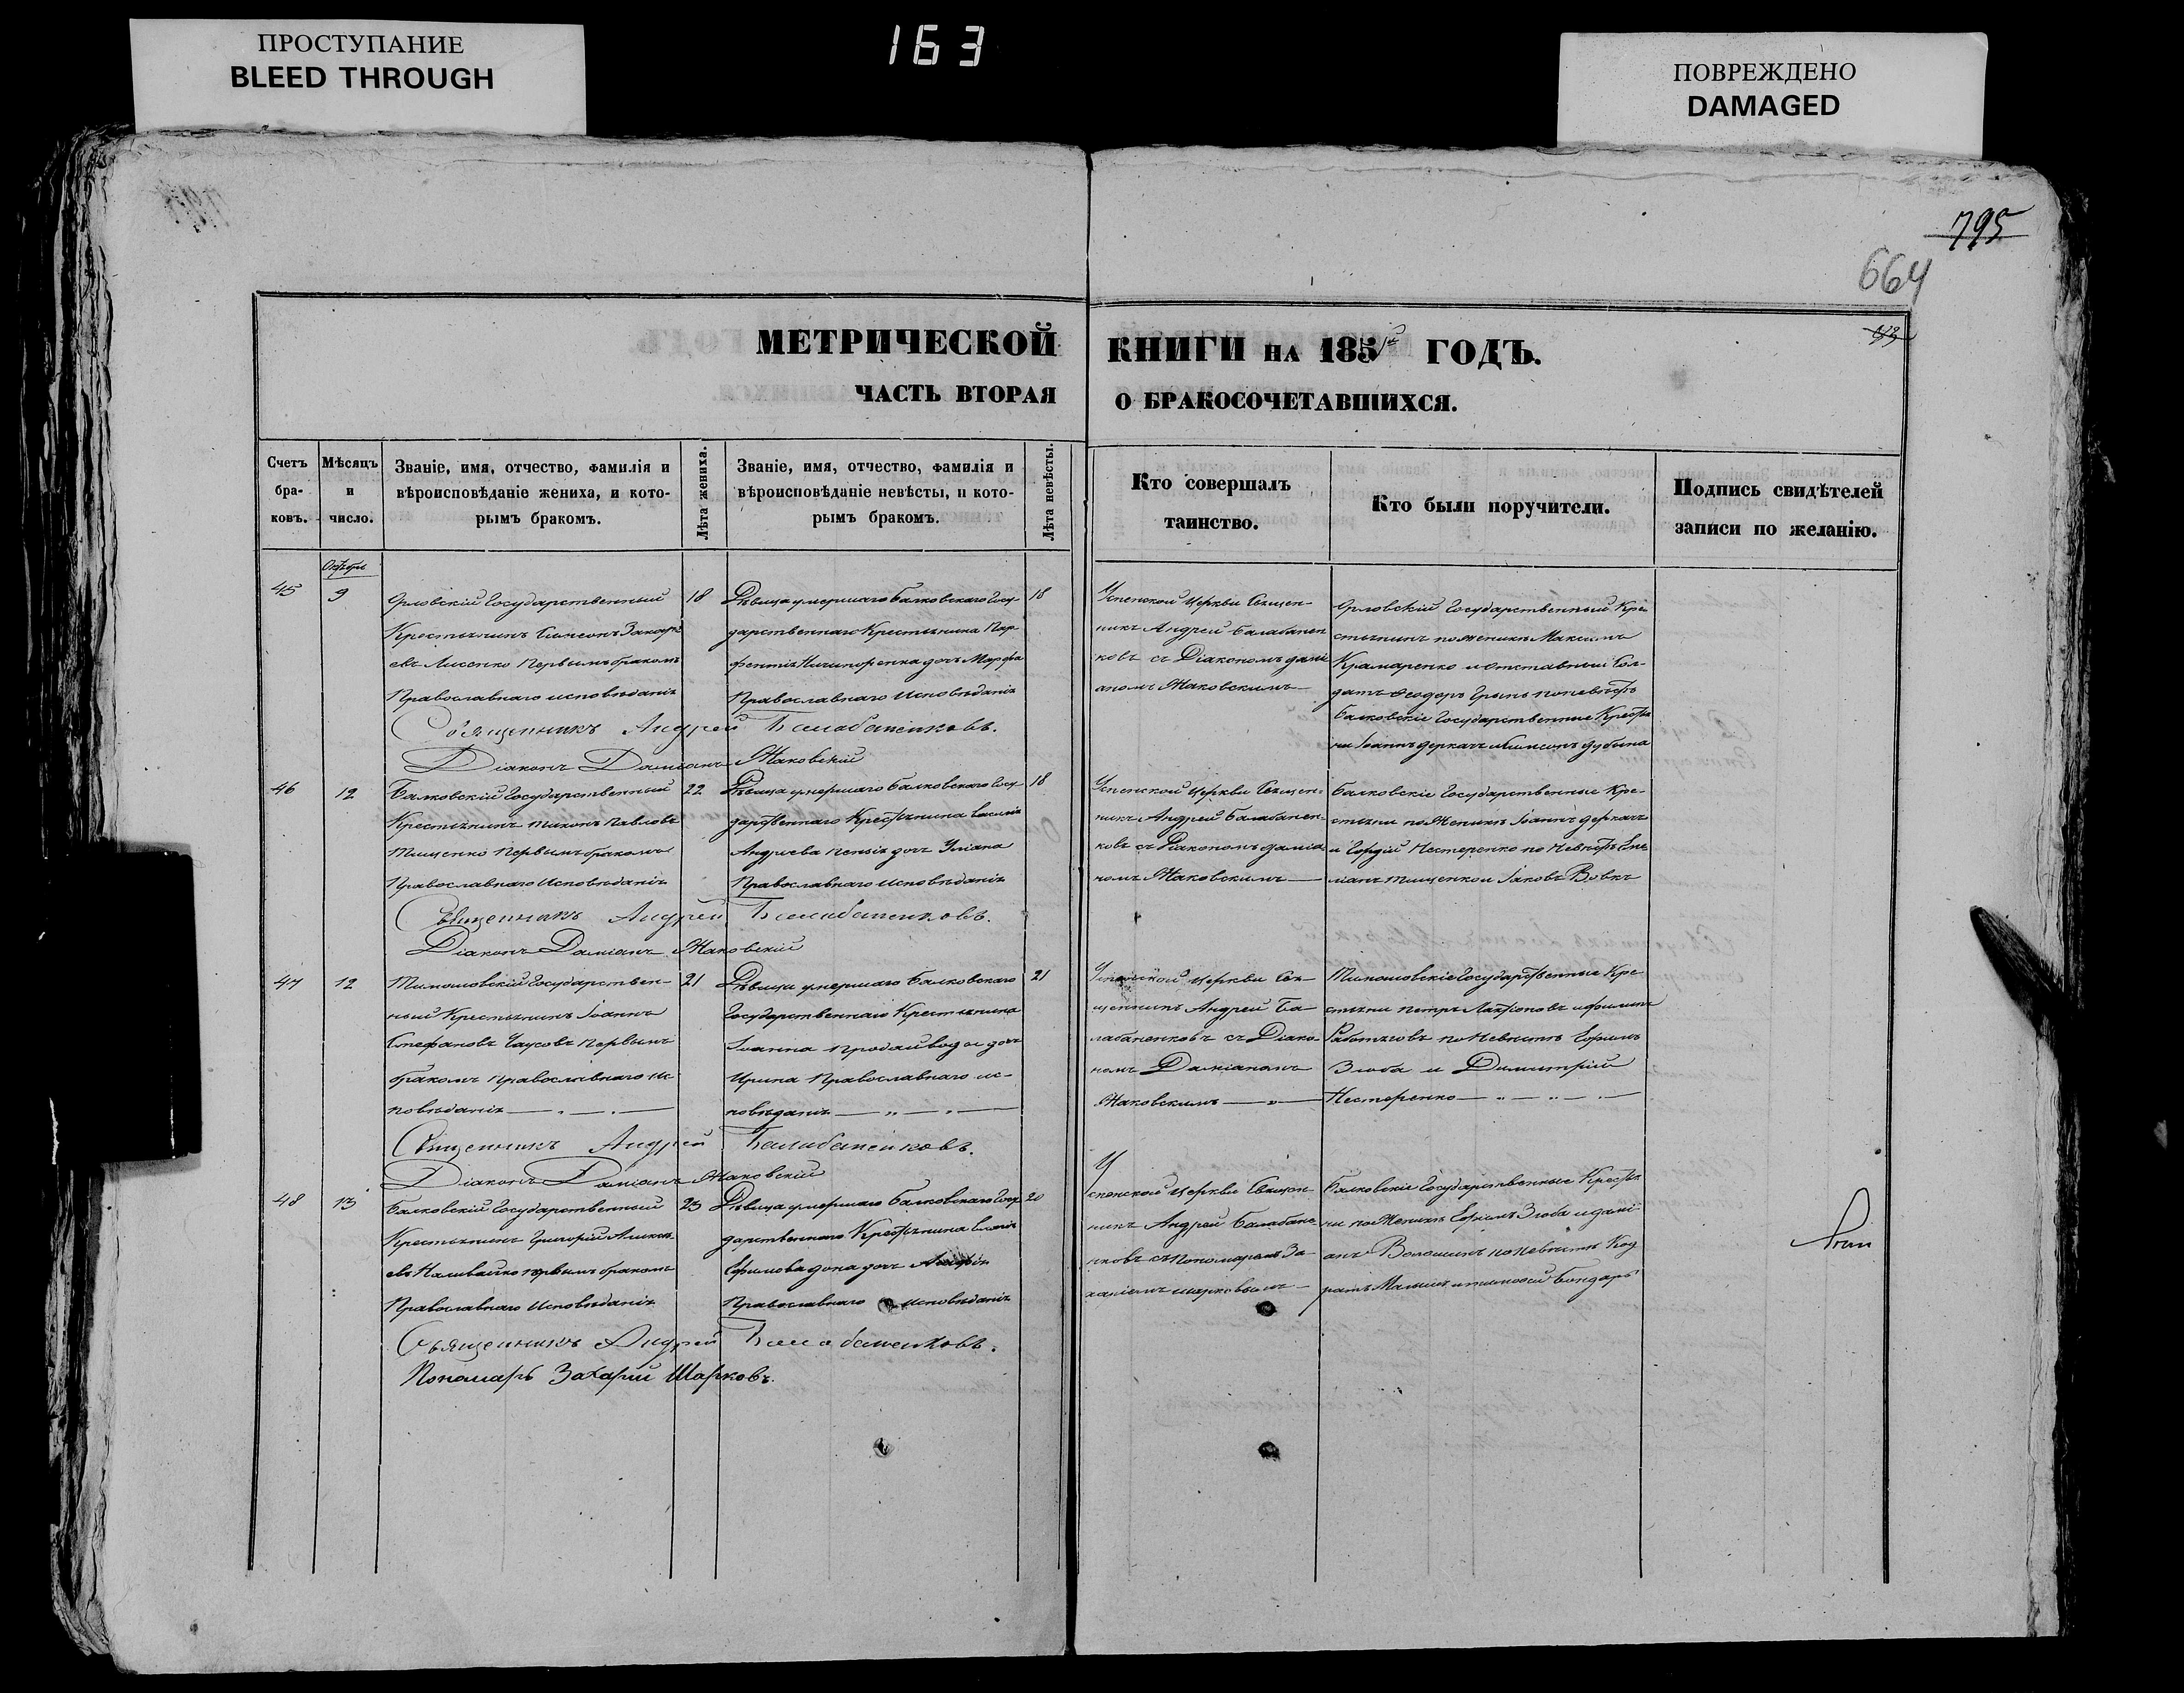 ПРОСТУПАНИЕ
BLEED THROUGH
163
ПОВРЕЖДЕНО
DAMAGED
795
664
МЕТРИЧЕСКОЙ КНИГИ НА 185 ГОДЪ.
ЧАСТЬ ВТОРАЯ О БРАКОСОЧЕТАВШИХСЯ.
Счетъ бра-ковъ.
Мѣсяцъ и число.
Званіе, имя, отчество, фамилія и
вѣроисповѣданіе жениха, и кото-
рымъ бракомъ.
Лѣта жениха.
Званіе, имя, отчество, фамилія и
вѣроисповѣданіе невѣсты, и кото-
рымъ бракомъ.
Лѣта невѣсты.
Кто совершалъ
таинство.
Кто были поручители.
Подпись свидѣтелей
записи по желанію.
Октября
45
9
Орловскій Государственный
Крестьянинъ Симеонъ Захарі
евъ Лисенко первымъ бракомъ
Православнаго исповѣданія
18
Дѣвица умершаго Балковскаго Госу-
дарственнаго Крестьянина Пар-
фентія Ничипоренка дочь Марфа
Православнаго Исповѣданія
18
Успенской Церкви Священ-
никъ Андрей Балабанен
ковъ съ Діакономъ Даміа
аномъ Маковскимъ
Орловскій Государственный Кре-
стьянинъ по женихѣ Максимъ
Крамаренко и отставный Сол-
датъ Феодоръ по невѣстѣ
Балковскіе Государственные Крестья
не Іоаннъ Деркачъ и Симеонъ Дубина
Священникъ Андрей Балабаненковъ.
Діаконъ Даміанъ Маковскій
46
12
Балковскій Государственный
Крестьянинъ Тихонъ Павловъ
Тищенко первымъ бракомъ
Православнаго Исповѣданія
22
Дѣвица умершаго Балковскаго Госу-
дарственнаго Крестьянина Василія
Андреева дочь Уліана
Православнаго исповѣданія
18
Успенской Церкви Священ-
никъ Андрей Балабанен-
ковъ съ Діакономъ Даміа
номъ Маковскимъ
Балковскіе Государственные Кре-
стьяни по Женихѣ Іоаннъ Деркачъ
и Гордій Нестеренко по Невѣстѣ Еме
ліанъ Тищенко и Іаковъ Вовкъ
Священникъ Андрей Балабаненковъ.
Діаконъ Даміанъ Маковскій
47
12
Тимошовскій Государствен-
ный Крестьянинъ Іоаннъ
Стефановъ первымъ
бракомъ Православнаго ис-
повѣданія
21
Дѣвица умершаго Балковскаго
Государственнаго Крестьянина
Іоанна Продайвода дочь
Ирина Православнаго ис-
повѣданія
21
Успенской Церкви Свя-
щенникъ Андрей Ба-
лабаненковъ съ Діако-
номъ Даміаномъ
Маковскимъ
Тимошовскіе Государственные Кре
стьяни Петръ и Филипъ
по Невѣстѣ Ефимъ
Злоба и Димитрій
Нестеренко
Священникъ Андрей Балабаненковъ.
Діаконъ Даміанъ Маковскій
48
13
Балковскій Государственный
Крестьянинъ Григорій Алексѣ-
евъ Наливайко первымъ бракомъ
Православнаго Исповѣданія
23
Дѣвица умершаго Балковскаго Госу
дарственнаго Крестьянина
Ефимова дочь
Православнаго исповѣданія
20
Успенской Церкви Священ-
никъ Андрей Балабане-
нковъ съ Пономаремъ За-
харіемъ Шарковымъ
Балковскіе Государственные Крестья
ни по Женихѣ Ефимъ Злоба и Дамі-
анъ Волошинъ по невѣстѣ Код
ратъ и Тимофей Бондарь
Священникъ Андрей Балабаненковъ.
Пономарь Захарий Шарковъ.